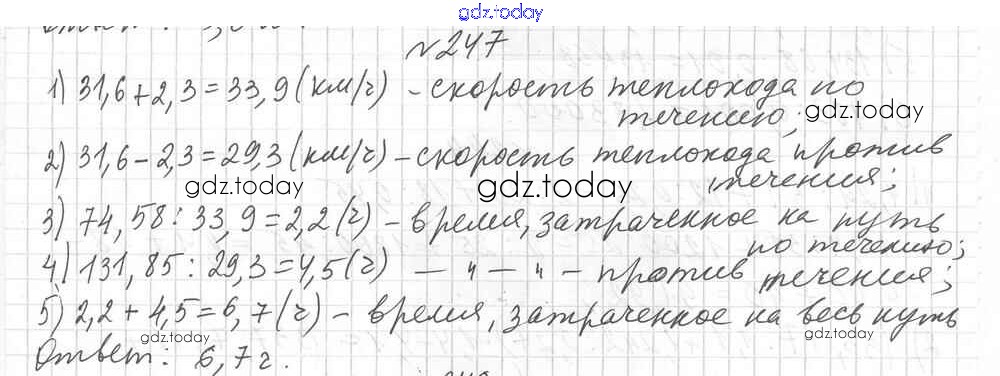 gdz.today
№247
1) 31,6+2,3=33,9(км/ч) - скорость теплохода по
gdz.today
течению;
2) 31,6-2,3=29,3(км/ч) - скорость теплохода против
gdz.today
gdz.today
течения;
3) 74,58:33,9=2,2(ч) - время, затраченное на путь
по течению;
4) 131,85:29,3=4,5(ч) - " - " - против течения;
gdz.today
gdz.today
5) 2,2+4,5=6,7(ч) - время, затраченное на весь путь
gdz.today
Ответ: 6,7ч.
gdz.today